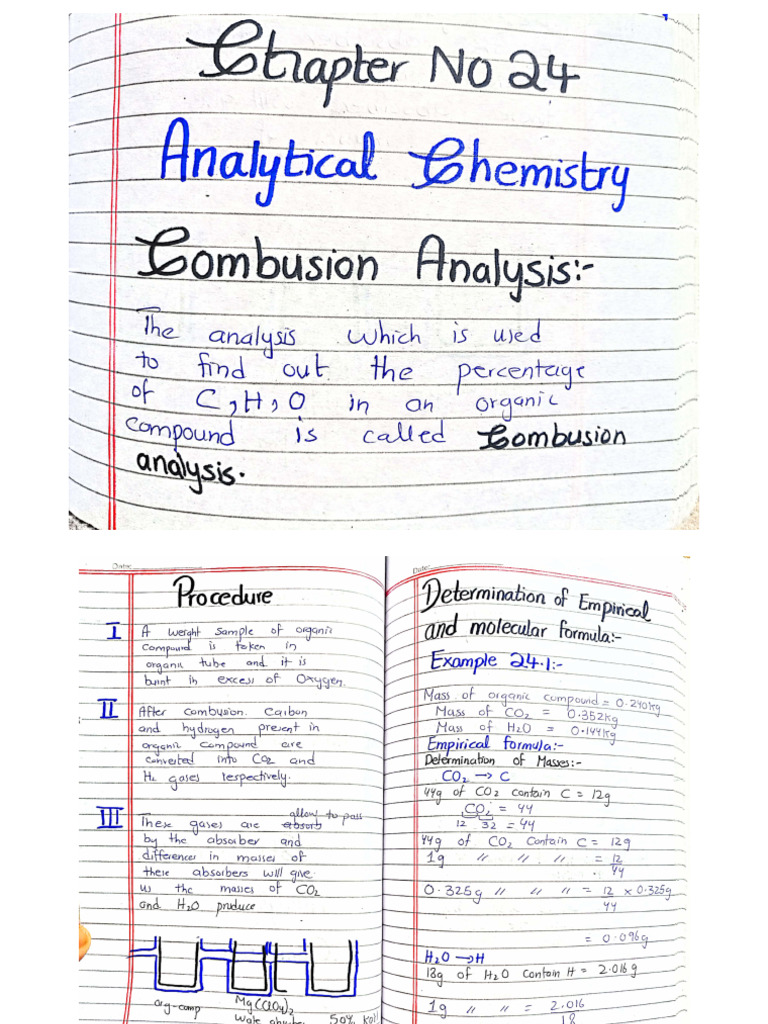 Chapter No 24
Analytical Chemistry
Combusion Analysis:-
The analysis which is used
to find out the percentage
of C, H, O in an organic
compound is called Combusion
analysis.
Date:
Procedure
I A weight sample of organic
compound is taken in
organic tube and it is
burnt in excess of Oxygen.
II After combusion. Carbon
and hydrogen present in
organic compound are
converted into CO2 and
H2 gases respectively.
III These gases are absorb allow to pass
by the absorber and
difference in masses of
these absorbers will give
us the masses of CO2
and H2O produce
org-comp
Mg(ClO4)2
50% KoH
Date:
Determination of Empirical
and molecular formula:-
Example 24.1:-
Mass of organic compound = 0.240kg
Mass of CO2 = 0.352kg
Mass of H2O = 0.144kg
Empirical formula:-
Determination of Masses:-
CO2 → C
44g of CO2 contain C = 12g
CO2 = 44
12 32 = 44
44g of CO2 contain C = 12g
1g " " " " = 12/44
0.325g " " " = 12/44 x 0.325g
= 0.096g
H2O → H
18g of H2O contain H = 2.016g
1g " " = 2.016/18